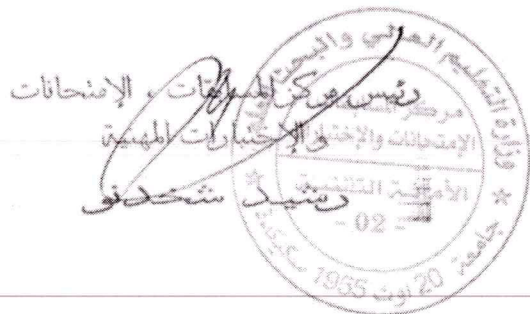 رئيس مركز المسابقات ، الإمتحانات
والإختبارات المهنية
رشيد شخدنو
وزارة التعليم العالي والبحث
جامعة 20 أوت 1955 سكيكدة
مركز
الإمتحانات والإختبارات
الأمانة التقنية
- 02 -